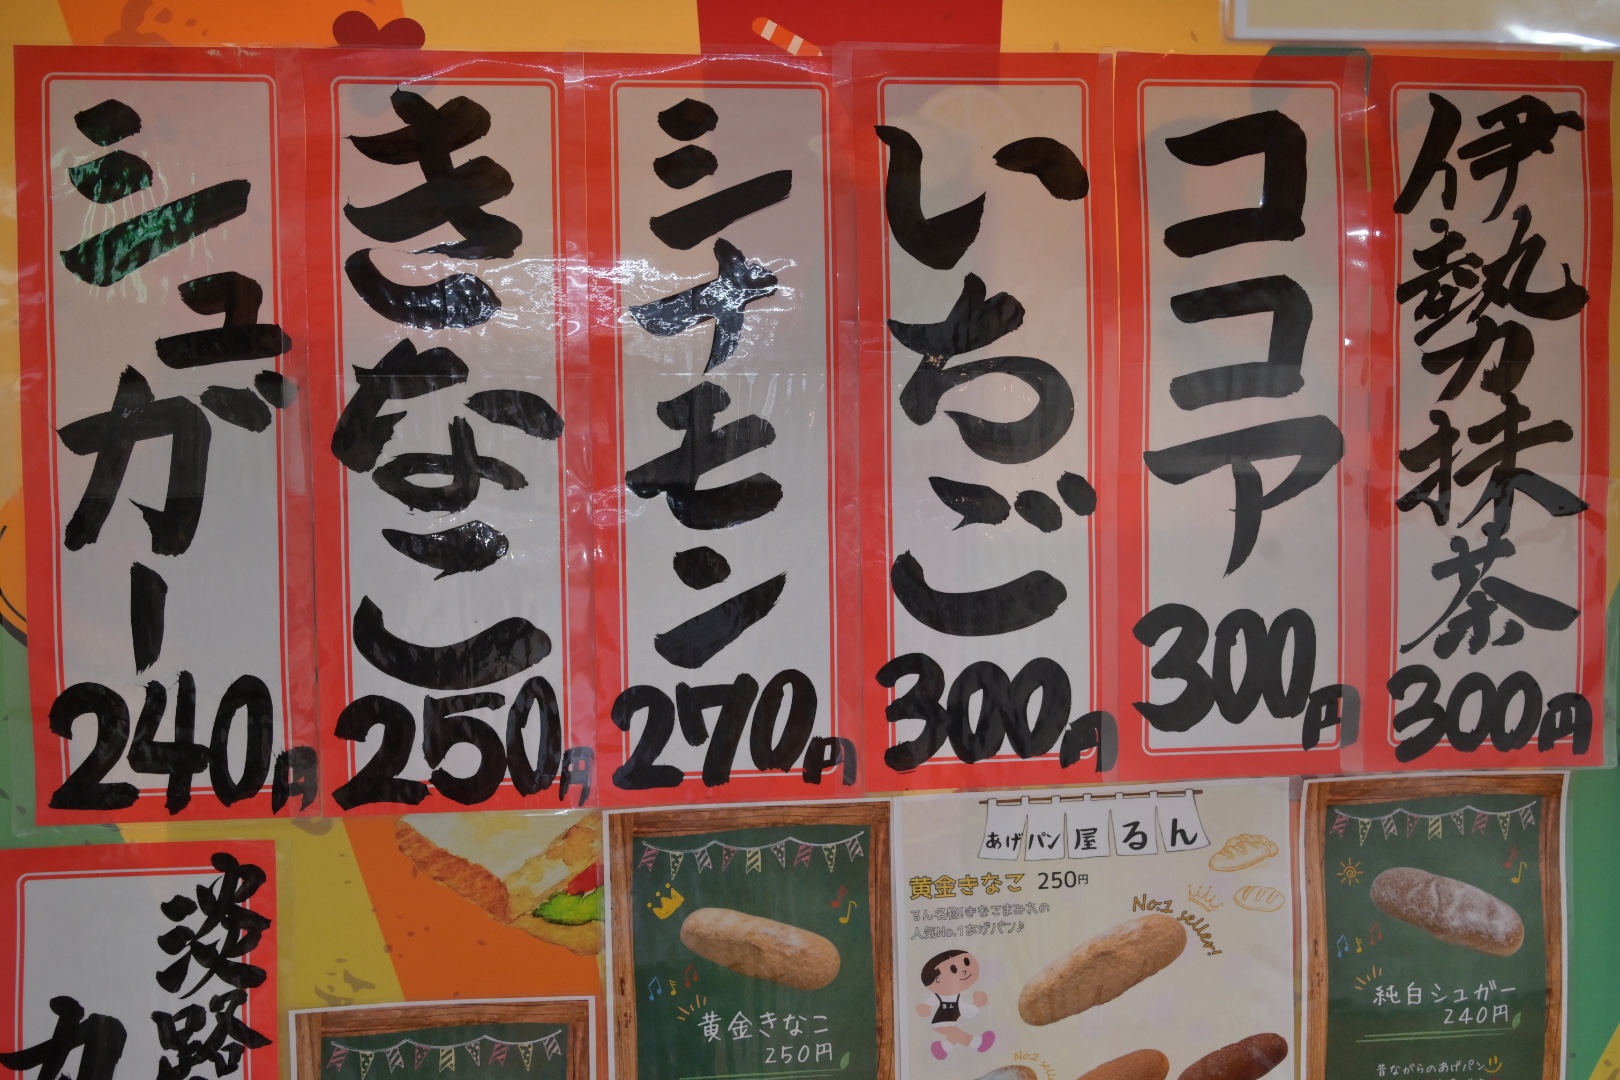 シュガー
240円
きなこ
250円
シナモン
270円
いちご
300円
ココア
300円
伊勢抹茶
300円
淡路
黄金きなこ
250円
あげパン屋るん
黄金きなこ 250円
るん名物!きなこまみれの
人気No.1あげパン♪
No.1 seller!
No.2
純白シュガー
240円
昔ながらのあげパン